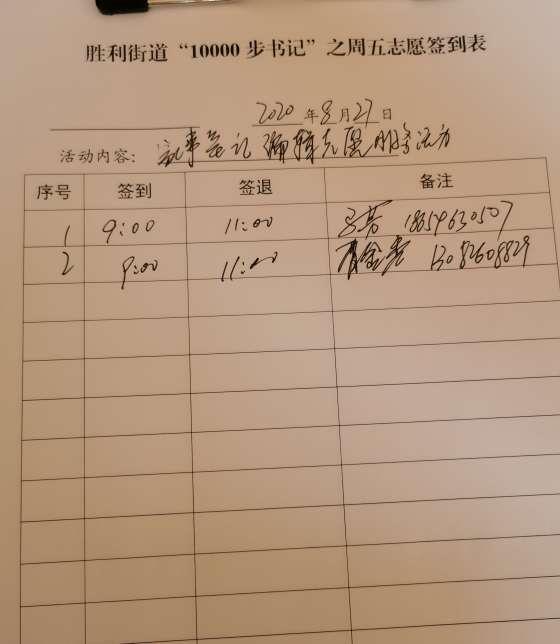 胜利街道“10000 步书记”之周五志愿签到表
2020 年 8 月 27 日
活动内容： 记 服务活动
序号 签到 签退 备注
1 9:00 11:00 芳 18659630507
2 9:00 11:00 13082608829